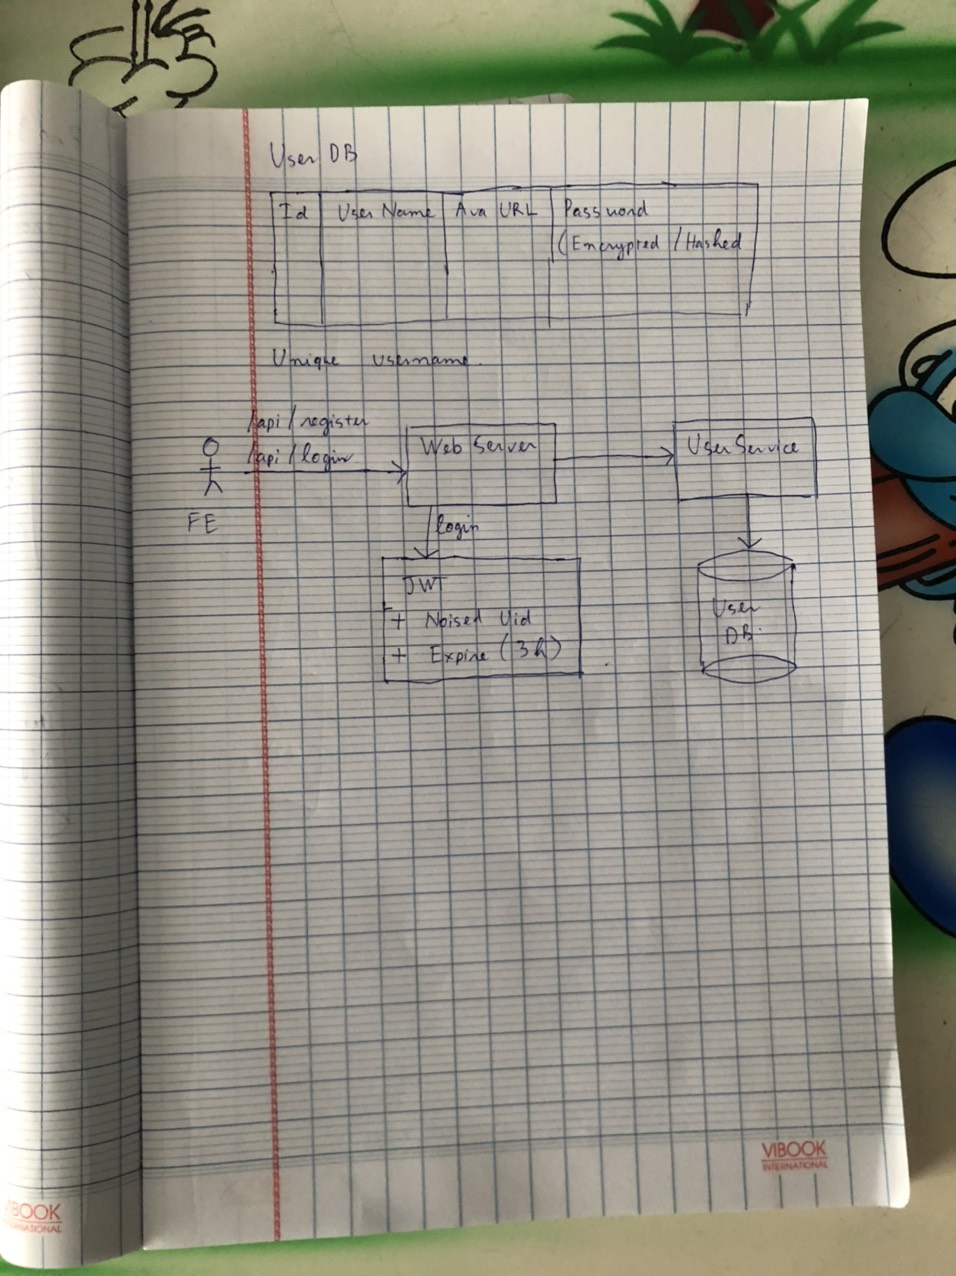 User DB
Id
User Name
Ava URL
Password
(Encrypted / Hashed
Unique username.
/api/register
/api/login
Web Server
User Service
FE
login
JWT
+ Noised Uid
+ Expire (3h)
User
DB.
VIBOOK
INTERNATIONAL
BOOK